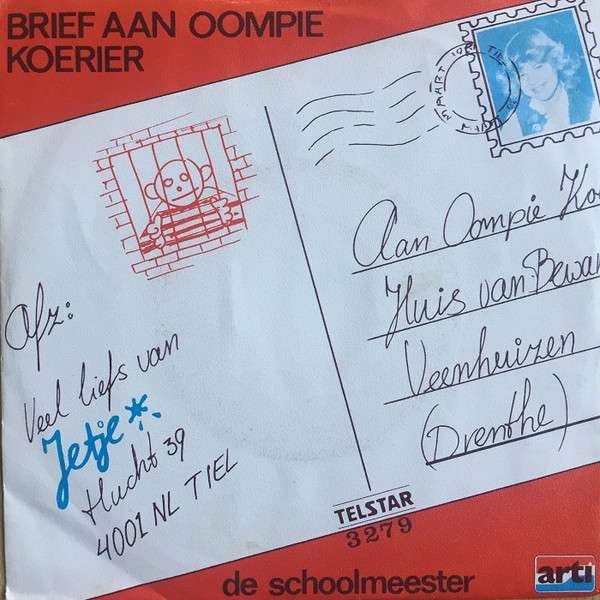 BRIEF AAN OOMPIE
KOERIER
MAART
TIEL
Aan Oompie Ko
Huis van Bewar
Veenhuizen
(Drenthe)
Afz:
Veel liefs van
Jetje
Hucht 39
4001 NL TIEL
TELSTAR
3279
de schoolmeester
arti